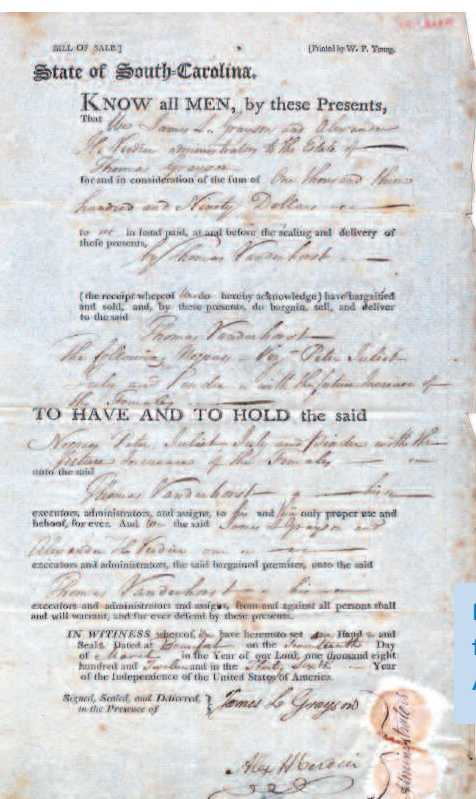 BILL OF SALE] [Printed by W. P. Young.
State of South-Carolina.
KNOW all MEN, by these Presents,
That We James L. Grayson and Alexander
H Verdier administrators to the Estate of
Thomas Grayson
for and in consideration of the sum of One thousand three
hundred and Ninety Dollars
to us in hand paid, at and before the sealing and delivery of
these presents,
by Thomas Vanderhorst
(the receipt whereof We do hereby acknowledge) have bargained
and sold, and, by these presents, do bargain, sell, and deliver
to the said
Thomas Vanderhorst
The following Negroes Viz Peter Juliet
July and with the future Increase of
the Females
TO HAVE AND TO HOLD the said
Negroes Peter Juliet July and with the
future Increase of the Females
unto the said
Thomas Vanderhorst his
executors, administrators, and assigns, to his and their only proper use and
behoof, for ever. And We the said James L Grayson and
Alexander H Verdier our
executors and administrators, the said bargained premises, unto the said
Thomas Vanderhorst his
executors and administrators and assigns, from and against all persons shall
and will warrant, and for ever defend by these presents.
IN WITNESS whereof, We have hereunto set our Hand s and
Seals Dated at Beaufort on the Day
of March in the Year of our Lord, one thousand eight
hundred and Twelve and in the Thirty Sixth Year
of the Independence of the United States of America.
Signed, Sealed, and Delivered,
in the Presence of
James L Grayson
Alex H Verdier
Administrators